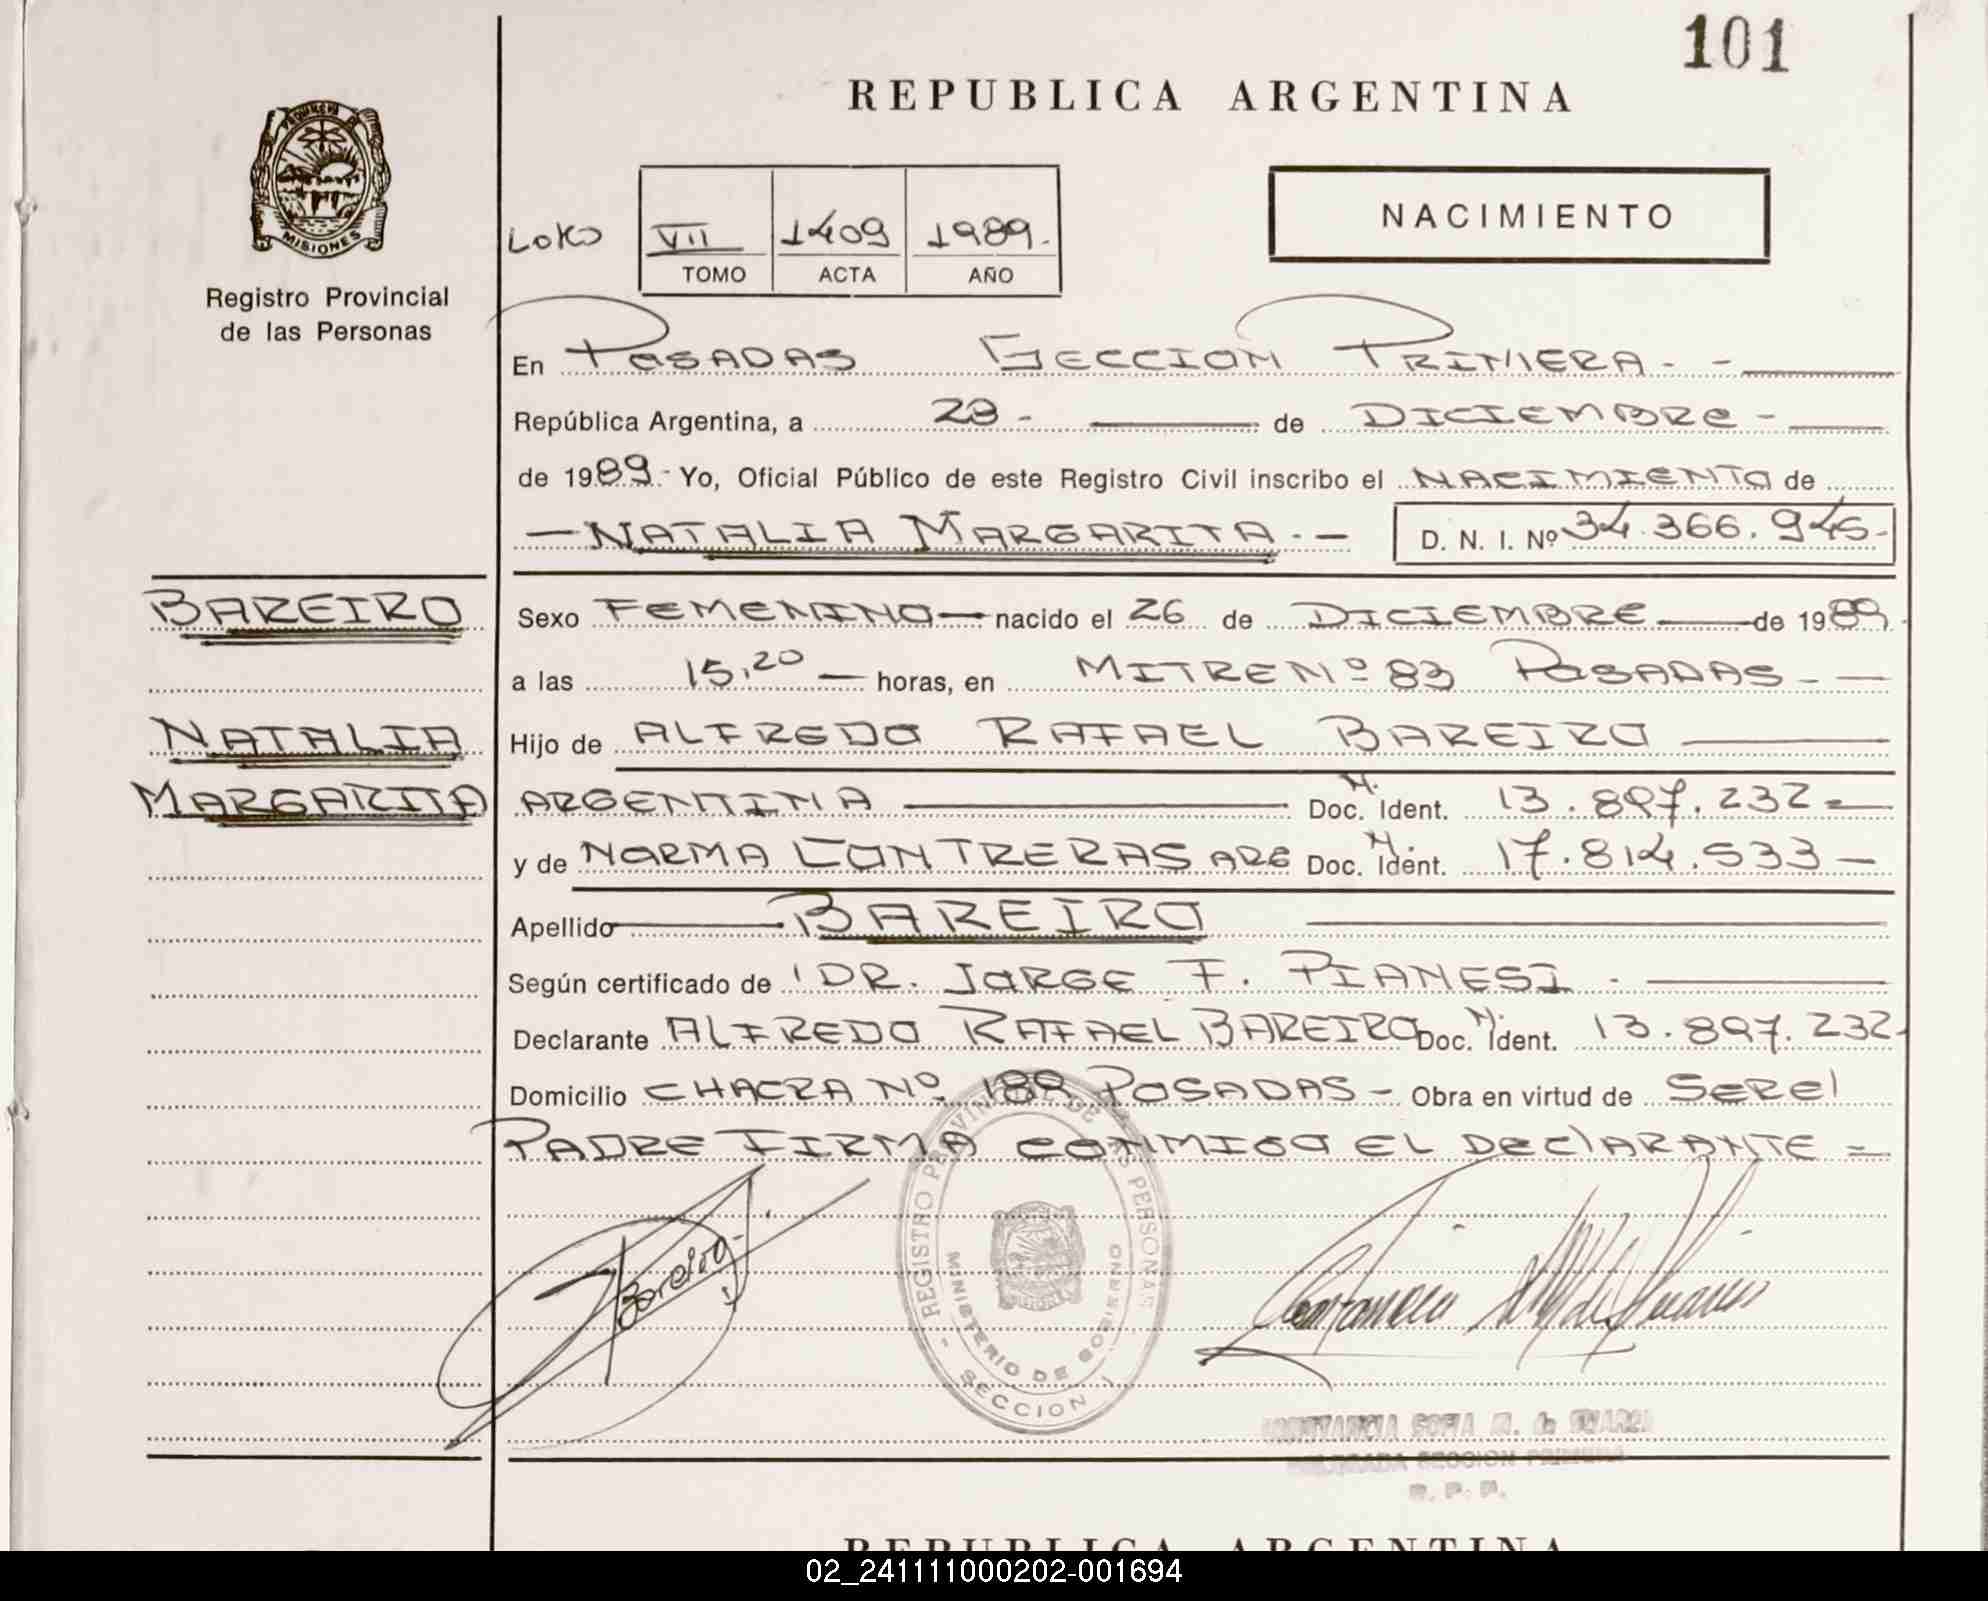 101
REPUBLICA ARGENTINA
PEQUIRI
MISIONES
Registro Provincial
de las Personas
NACIMIENTO
VII 1409 1989.-
TOMO ACTA AÑO
En POSADAS SECCION PRIMERA.-
República Argentina, a 28 - de DICIEMBRE -
de 1989.- Yo, Oficial Público de este Registro Civil inscribo el NACIMIENTO de
— NATALIA MARGARITA.— D. N. I. Nº 34.366.945-
BAREIRO
NATALIA
MARGARITA
Sexo FEMENINO — nacido el 26 de DICIEMBRE — de 1989.
a las 15,20 — horas, en MITRE Nº 83 POSADAS - —
Hijo de ALFREDO RAFAEL BAREIRO —
ARGENTINA — Doc. M. Ident. 13.897.232 —
y de NORMA CONTRERAS ARG Doc. M. Ident. 17.814.533 —
Apellido — BAREIRO —
Según certificado de DR. JORGE F. PIANESI . —
Declarante ALFREDO RAFAEL BAREIRO Doc. M. Ident. 13.897.232-
Domicilio CHACRA Nº 189 POSADAS - Obra en virtud de SER el
PADRE FIRMA CONMIGO EL DEClARANTE =
Bareiro
REGISTRO PROVINCIAL DE LAS PERSONAS
MINISTERIO DE GOBIERNO
SECCION I
CONSTANCIA SOFIA M. de SUAREZ
DELEGADA SECCION PRIMERA
R. P. P.
REPUBLICA ARGENTINA
02_241111000202-001694